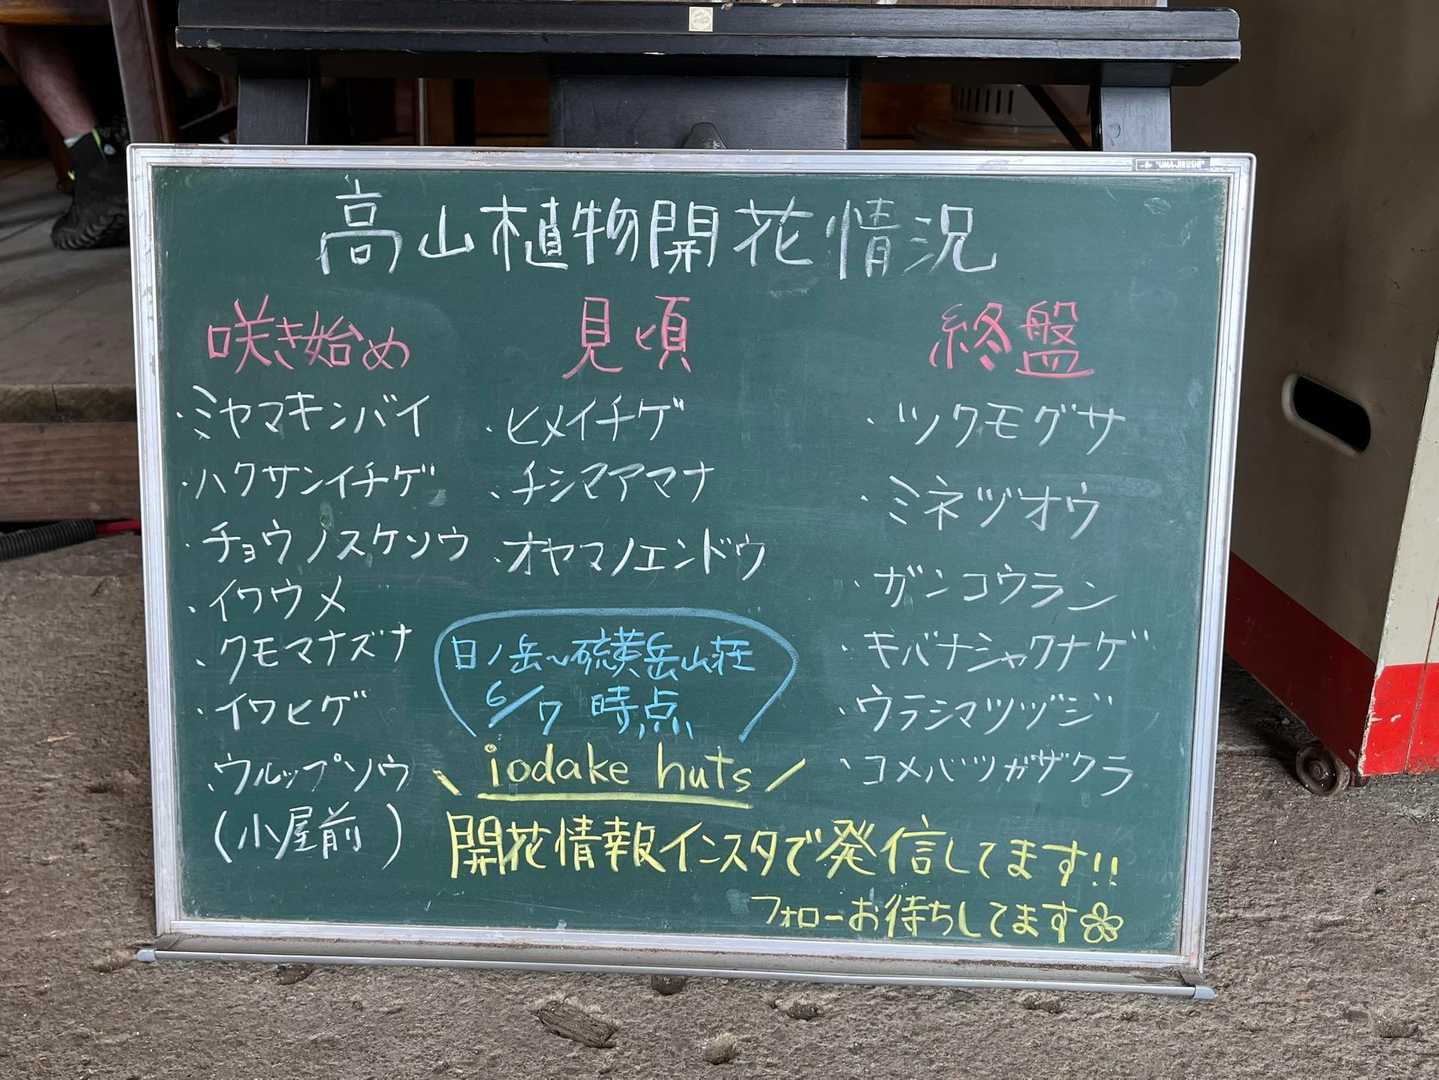 高山植物開花情況
咲き始め
・ミヤマキンバイ
・ハクサンイチゲ
・チョウノスケソウ
・イワウメ
・クモマナズナ
・イワヒゲ
・ウルップソウ
(小屋前)
見頃
・ヒメイチゲ
・チシマアマナ
・オヤマノエンドウ
終盤
・ツクモグサ
・ミネヅオウ
・ガンコウラン
・キバナシャクナゲ
・ウラシマツヅジ
・コメバツガザクラ
日ノ岳～硫黄岳山荘
6/7 時点
\ iodake huts /
開花情報インスタで発信してます!!
フォローお待ちしてます